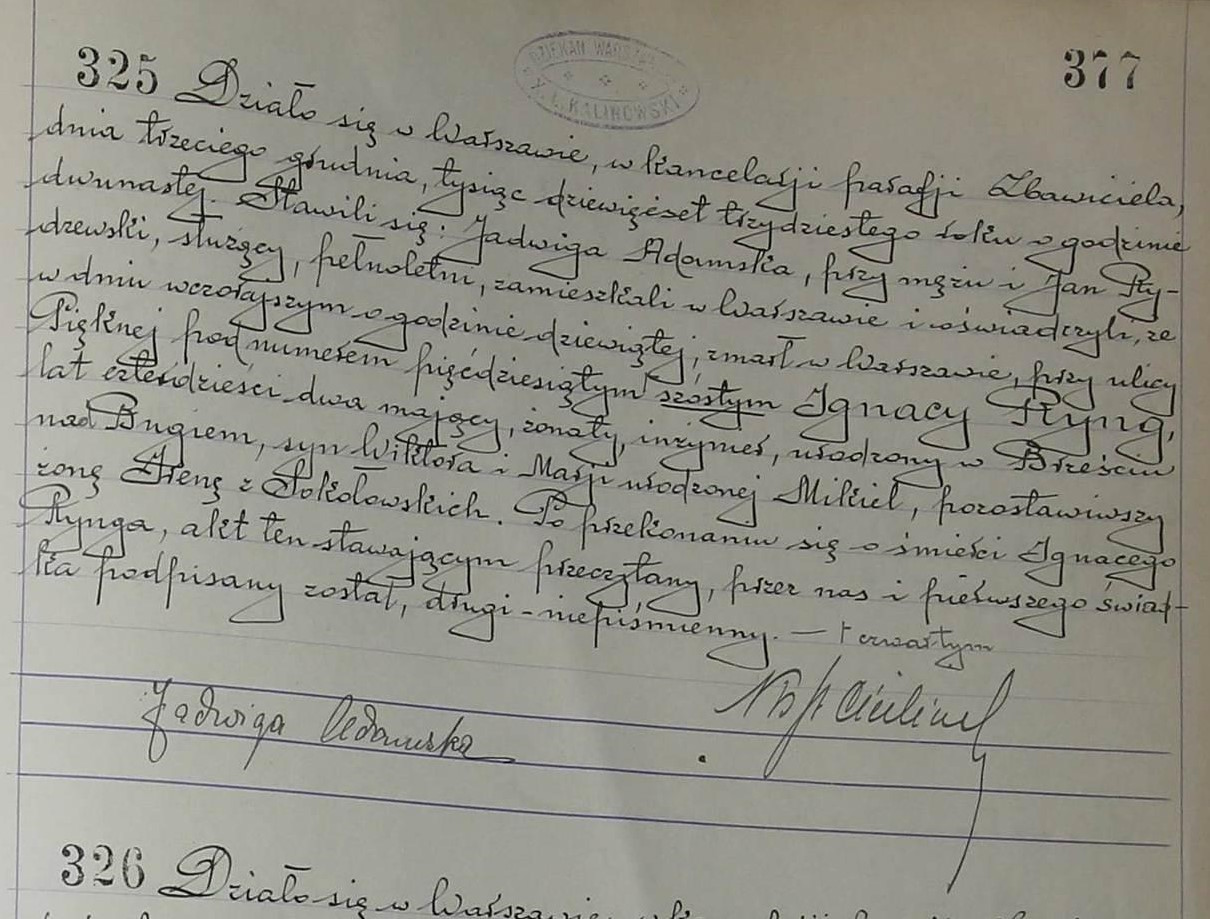 325
377
DZIEKAN WARSZAWSKI
X. L. KALINOWSKI
Działo się w Warszawie, w kancelarji parafji Zbawiciela,
dnia trzeciego grudnia, tysiąc dziewięćset trzydziestego roku o godzinie
dwunastej. Stawili się: Jadwiga Adamska, przy mężu i Jan Ry-
dzewski, służący, pełnoletni, zamieszkali w Warszawie i oświadczyli, że
w dniu wczorajszym o godzinie dziewiątej, zmarł w Warszawie, przy ulicy
Pięknej pod numerem pięćdziesiątym szóstym Ignacy Ryng,
lat czterdzieści dwa mający, żonaty, inżynier, urodzony w Brześciu
nad Bugiem, syn Wiktora i Marji urodzonej Mikiel, pozostawiwszy
żonę Irenę z Sokołowskich. Po przekonaniu się o śmierci Ignacego
Rynga, akt ten stawającym przeczytany, przez nas i pierwszego świad-
ka podpisany został, drugi - niepiśmienny. — czwartym
Jadwiga Adamska
326 Działo się w Warszawie, w kancelarji